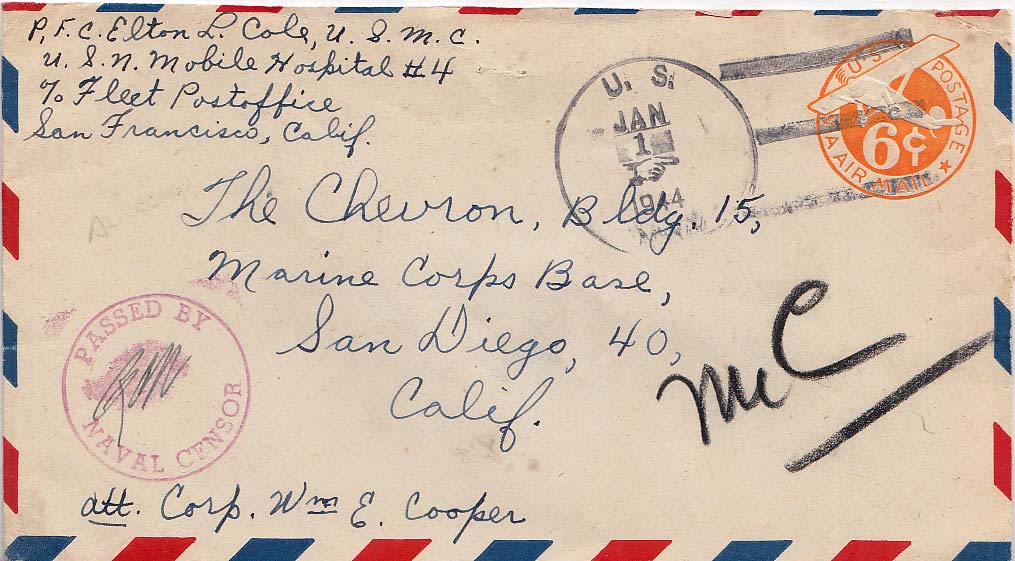 P.F.C. Elton L. Cole, U. S. M. C.
U. S. N. Mobile Hospital #4
℅ Fleet Postoffice
San Francisco, Calif.
U. S.
JAN
1
1944
U.S. POSTAGE
6¢
VIA AIR MAIL
The Chevron, Bldg. 15,
Marine Corps Base,
San Diego, 40,
Calif.
MC
PASSED BY
NAVAL CENSOR
att. Corp. Wm E. Cooper